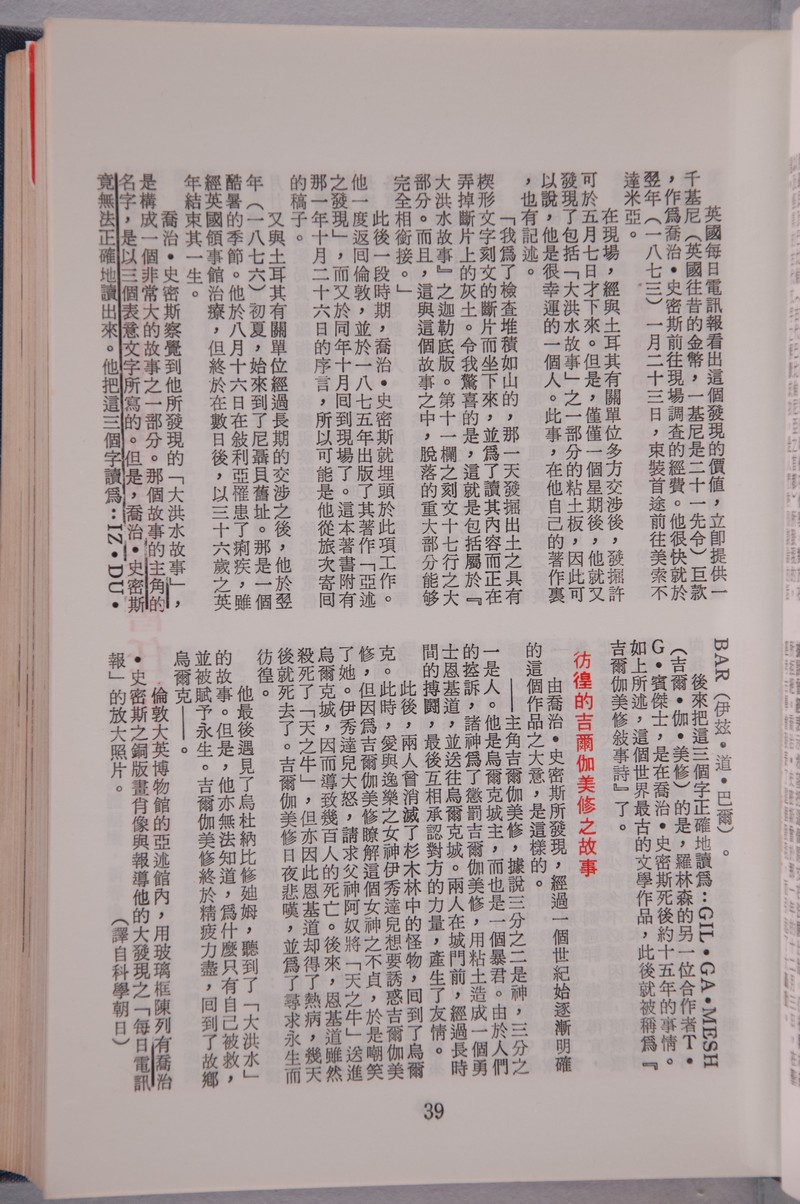 英國每日電訊報看出這個發現的價值，立即提供一
千基尼（英國往昔的金幣，一基尼是二十一先令）巨款
，作爲喬治•史密斯前往現場調查的經費。他很快就於
翌年（一八七三）一月二十三日，束裝首途前往美索不
達米亞。
在現場，經與土耳其有關單位多方交涉後，發掘許
可於五月七日才下來。但是，僅僅一個星期後，他就又
發現了包括「大洪水故事」之一部分的粘土板，因此可
以說，他是很幸運的一個人。此事，在他自己的著作裏
，也有記述。
「我爲了檢查堆積如山的，那一天發掘出土之具有
楔形文字刻文的斷片而坐下來，並爲了讀其內容而正在
弄掉斷片上的灰土。令我驚喜的是，這就是包括屬於『
大洪水故事』之迦勒底版。第十一欄之刻文十七行之大
部分。而且，這與這個故事之中，脫落的重大部分能够
完全相銜接。」
此後一段時期，喬治•史密斯就埋頭於此項工作。
他一度返回倫敦，並於一八七五年出版了其著作「亞述
之發現」，而又於同年十月回到現場了。這本著書附有
那一年十月二十六日的序言，所以可能是他從旅次寄回
的稿子。
又與土耳其有關單位經過長期的交涉之後，他於翌
年（一八七六）初夏，始來到了尼聶貝舊址。那是一個
酷暑的季節。他於八月十六日在敍利亞罹患了痢疾，雖
經英國領事館治療，但終於在數日後，以三十六歲之英
年結束其一生。
喬治•史密斯察覺到他所發現的「大洪水故事」，
是構成一個非常大的故事之一部分。那個故事的主角的
名字，是以三個表意文字所寫的。但是，喬治•史密斯
竟無法正確地讀出來。他把這三個字讀爲：IZ•DU•
BAR（伊玆•道•巴爾）。
後來把這三個字正確地讀爲：GIL•GA•MESH
（吉爾•伽•美修）的是，羅林森的另一位合作者T•
G•賓傑士，是在喬治•史密斯死後約十五年的事情。
如上所述，這個世界最古的文學作品，此後就被稱爲『
吉爾伽美修敍事詩』了。
彷徨的吉爾伽美修之故事
由喬治•史密斯所發現，經過一個世紀始逐漸明確
的這個作品之大意，是這樣的。
——主角吉爾伽美修，據說三分之二是神，三分之
一是人。他是烏爾克城主，而也是一個暴君。由於人們
的控訴，諸神爲了懲罰吉爾伽美修，用粘土造成一個勇
士恩基道，並送往烏爾克城。兩人在城門前，經過長時
間的搏鬪，最後互相承認對方的力量，產生了友情。
此後，兩人曾消滅了杉木林中的怪物，回到了烏爾
克。此時，愛與逸樂之女神伊秀達兒想要誘惑吉爾伽美
修，但因爲吉爾伽美修瞭解這個女神之不貞，於是嘲笑
了她。伊秀達兒大怒，請求父神阿奴將「天之牛」送進
烏爾克城，因而導致幾百人的死亡。後來，恩基道雖然
殺死了「天之牛」，但亦因此恩基道却得了熱病，幾天
後就死去了。吉爾伽美修日夜悲嘆，並爲了尋求永生而
彷徨。
他最後遇見了烏杜納比修廸姆，聽到了「大洪水」
的故事。但是，他亦無法知道，爲什麼只有自己被救，
並被賦予永生。吉爾伽美修終於精疲力盡，回到了故鄉
烏爾克——。
倫敦大英博物館的亞述館內，用玻璃框陳列有喬治
•史密斯之銅版畫肖像與報導他的大發現之「每日電訊
報」的放大照片。
（譯自科學朝日）
39